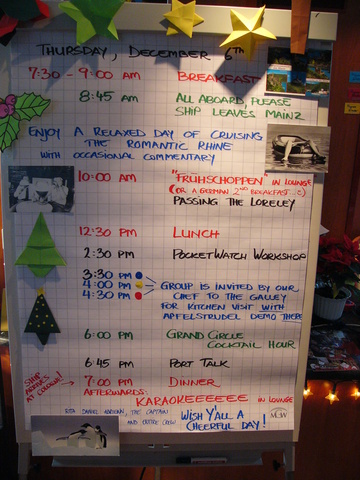 THURSDAY, DECEMBER 6TH
7:30 - 9:00 AM BREAKFAST
8:45 AM ALL ABOARD, PLEASE
SHIP LEAVES MAINZ
ENJOY A RELAXED DAY OF CRUISING
THE ROMANTIC RHINE
WITH OCCASIONAL COMMENTARY
10:00 AM "FRÜHSCHOPPEN" IN LOUNGE
(OR A GERMAN 2ND BREAKFAST...)
PASSING THE LORELEY
12:30 PM LUNCH
2:30 PM POCKETWATCH WORKSHOP
3:30 PM
4:00 PM GROUP IS INVITED BY OUR
4:30 PM CHEF TO THE GALLEY
FOR KITCHEN VISIT WITH
APFELSTRUDEL DEMO THERE
6:00 PM GRAND CIRCLE
COCKTAIL HOUR
6:45 PM PORT TALK
SHIP
ARRIVES
AT COLOGNE!
7:00 PM DINNER
AFTERWARDS: KARAOKEEEEEE IN LOUNGE
DANIEL, THE CAPTAIN
AND ENTIRE CREW
WISH Y'ALL A
CHEERFUL DAY!